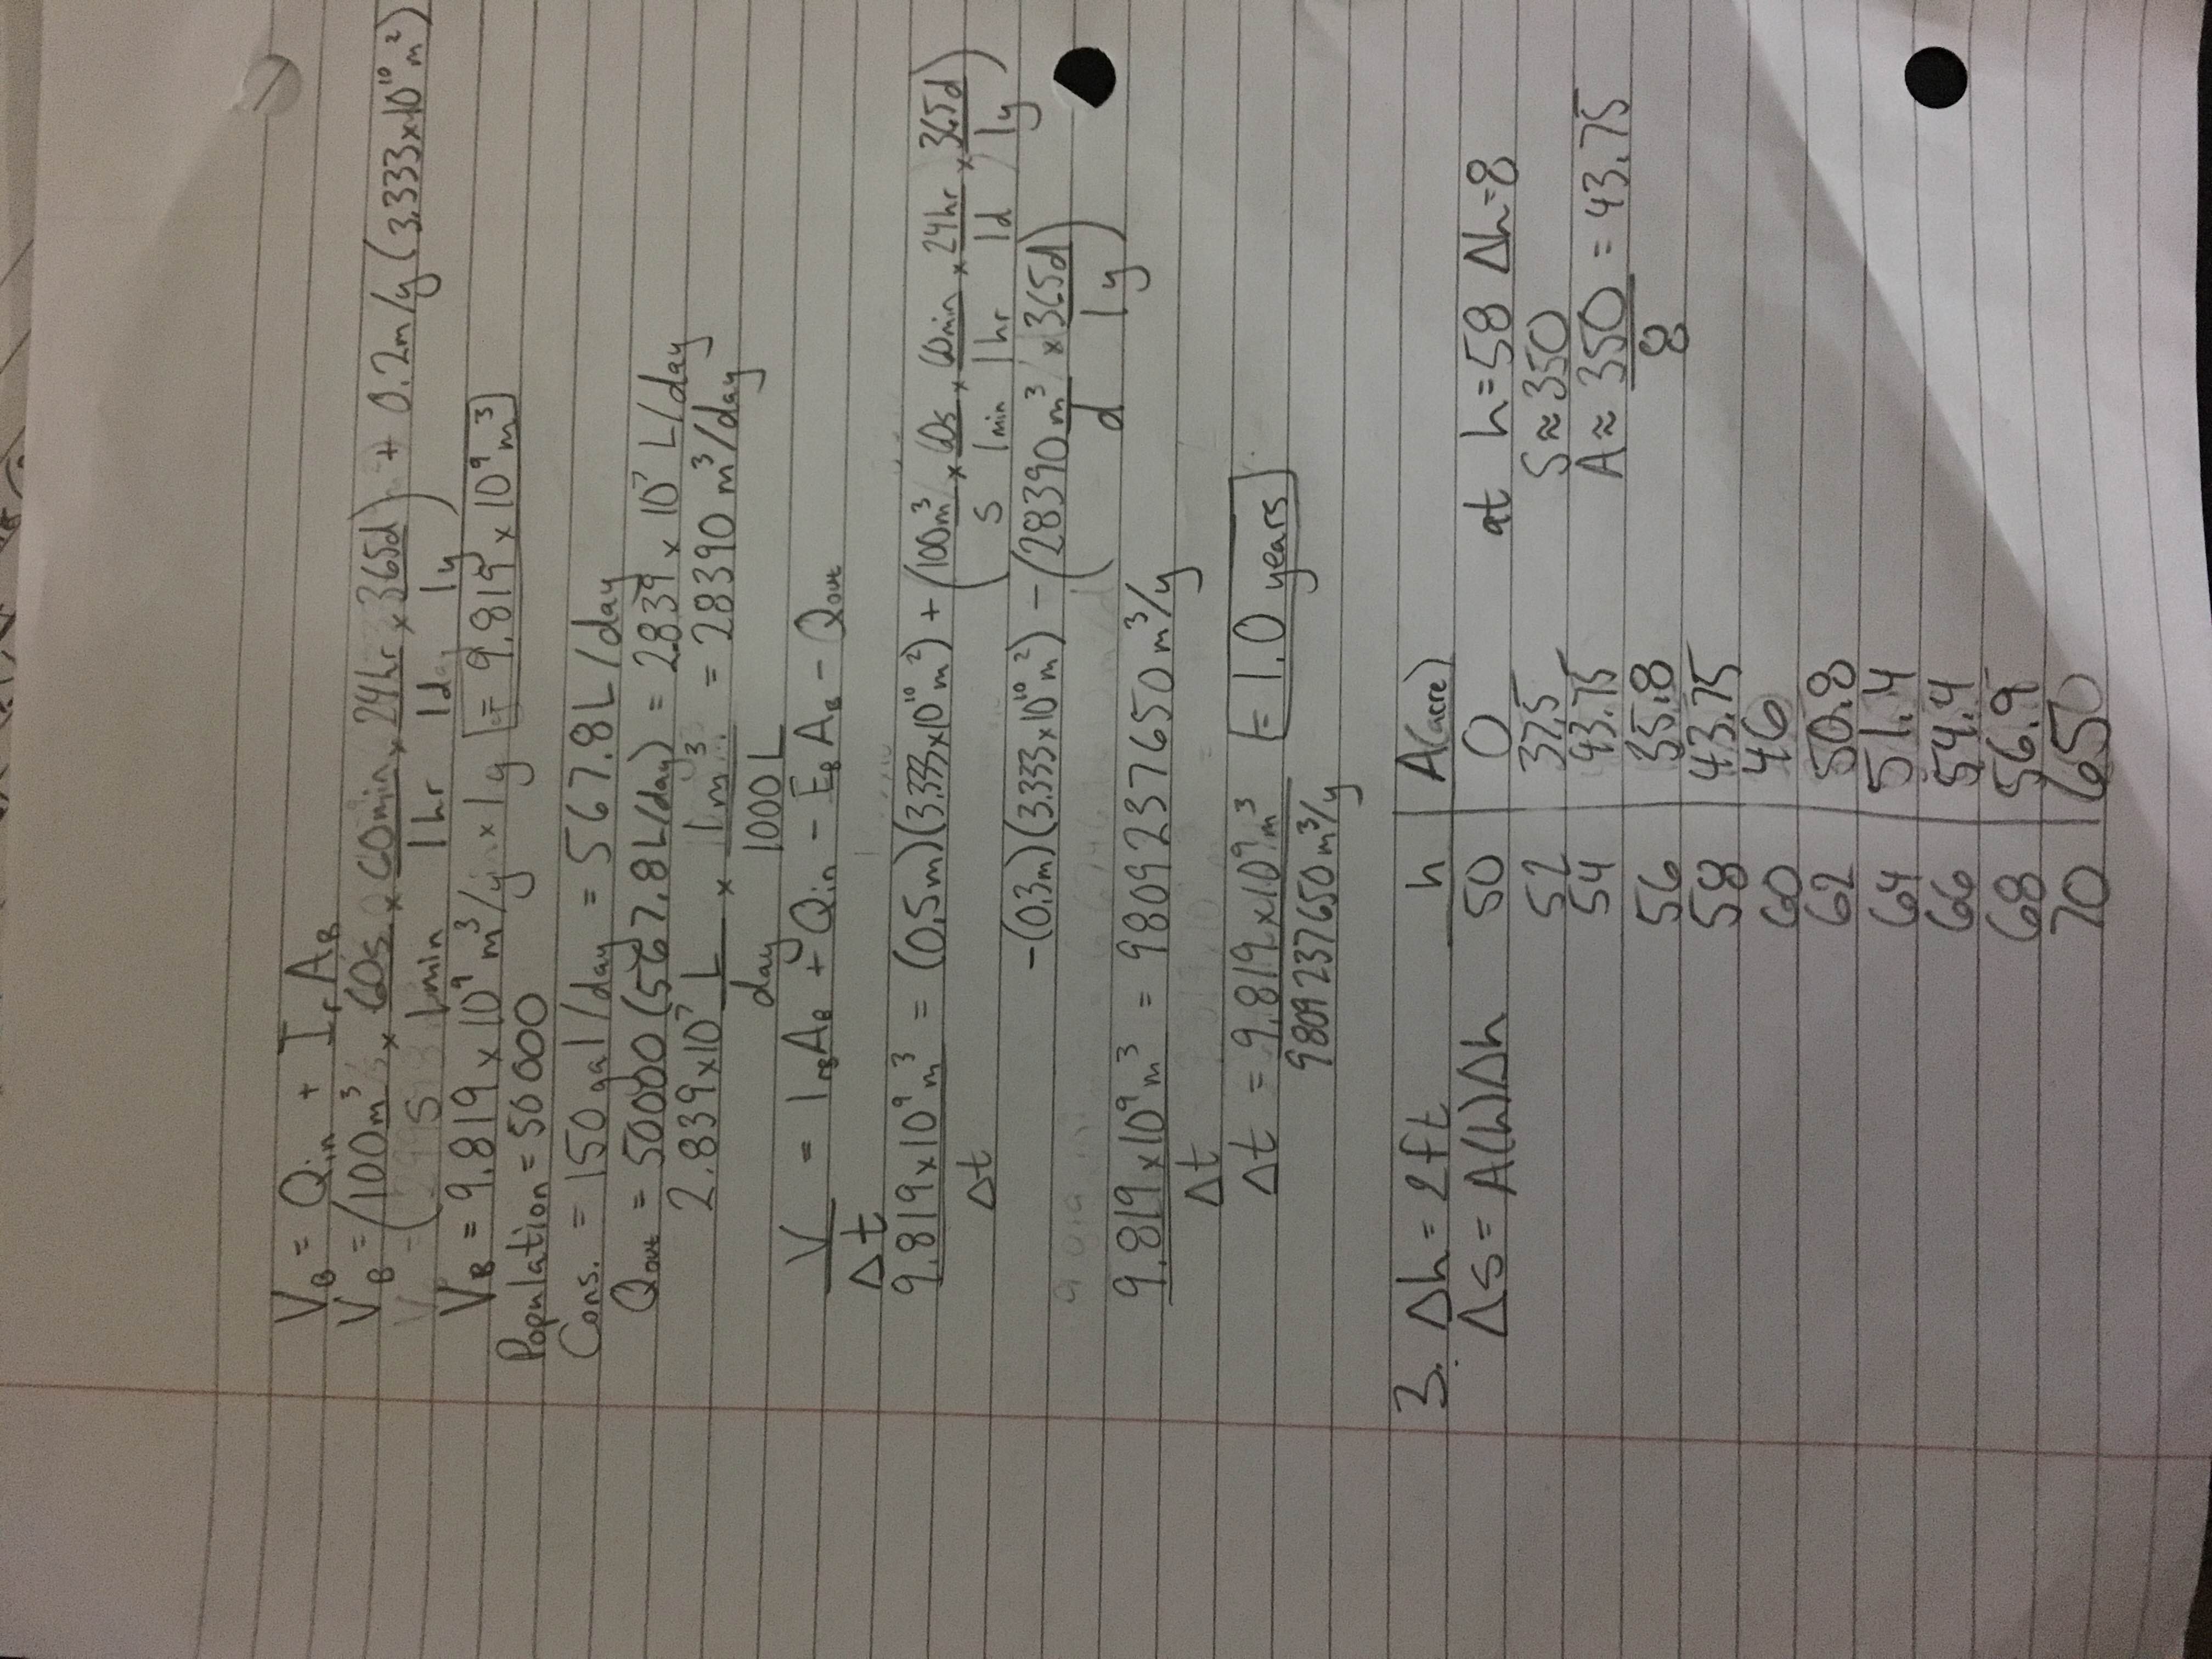 V_B = Q_in + I_r A_B
V_B = (100m³/s × 60s/1min × 60min/1hr × 24hr/1d × 365d/1y) + 0.2m/y (3.333×10¹⁰m²)
V_B = 9.819 × 10⁹ m³/y × 1y = 9.819 × 10⁹ m³
Population = 50 000
Cons. = 150 gal/day = 567.8 L/day
Q_out = 50000 (567.8L/day) = 2.839 × 10⁷ L/day
2.839×10⁷ L/day × 1m³/1000L = 28390 m³/day
V/Δt = I_rB A_B + Q_in - E_B A_B - Q_out
9.819×10⁹m³/Δt = (0.5m)(3.333×10¹⁰m²) + (100m³/s × 60s/1min × 60min/1hr × 24hr/1d × 365d/1y)
-(0.3m)(3.333×10¹⁰m²) - (28390m³/d × 365d/1y)
9.819×10⁹m³/Δt = 9809237650m³/y
Δt = 9.819×10⁹m³/9809237650m³/y = 1.0 years
3. Δh = 2ft
ΔS = A(h)Δh
h A(acre)
50 0
52 37.5
54 43.75
56 35.8
58 43.75
60 46
62 50.8
64 51.4
66 54.4
68 56.9
70 650
at h=58 Δh=8
S≈350
A≈ 350/8 = 43.75